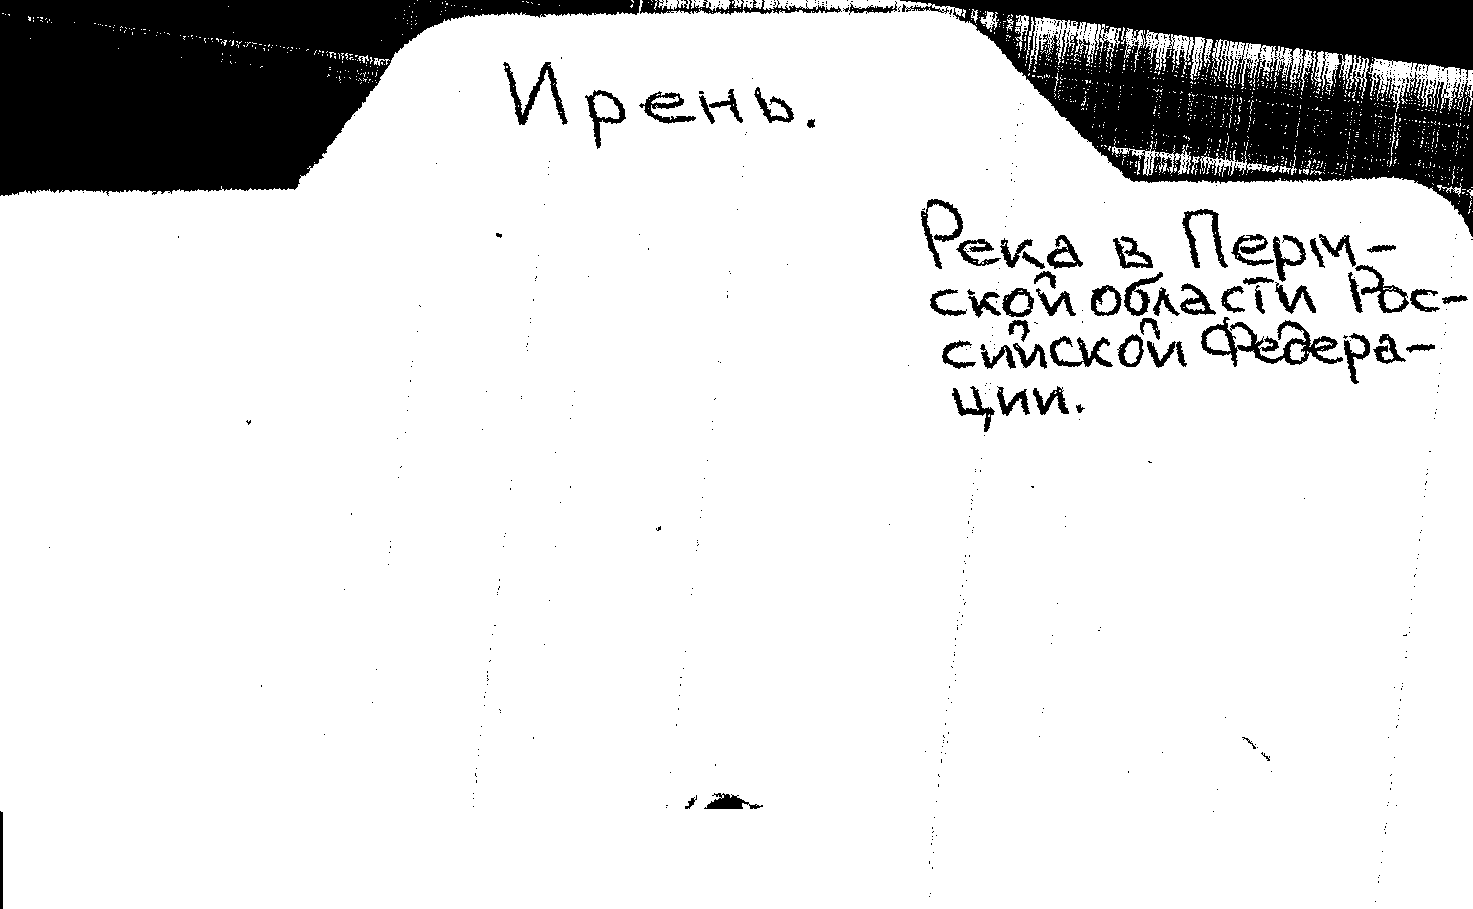 Ирень.
Река в Перм-
ской области Рос-
сийской Федера-
ции.